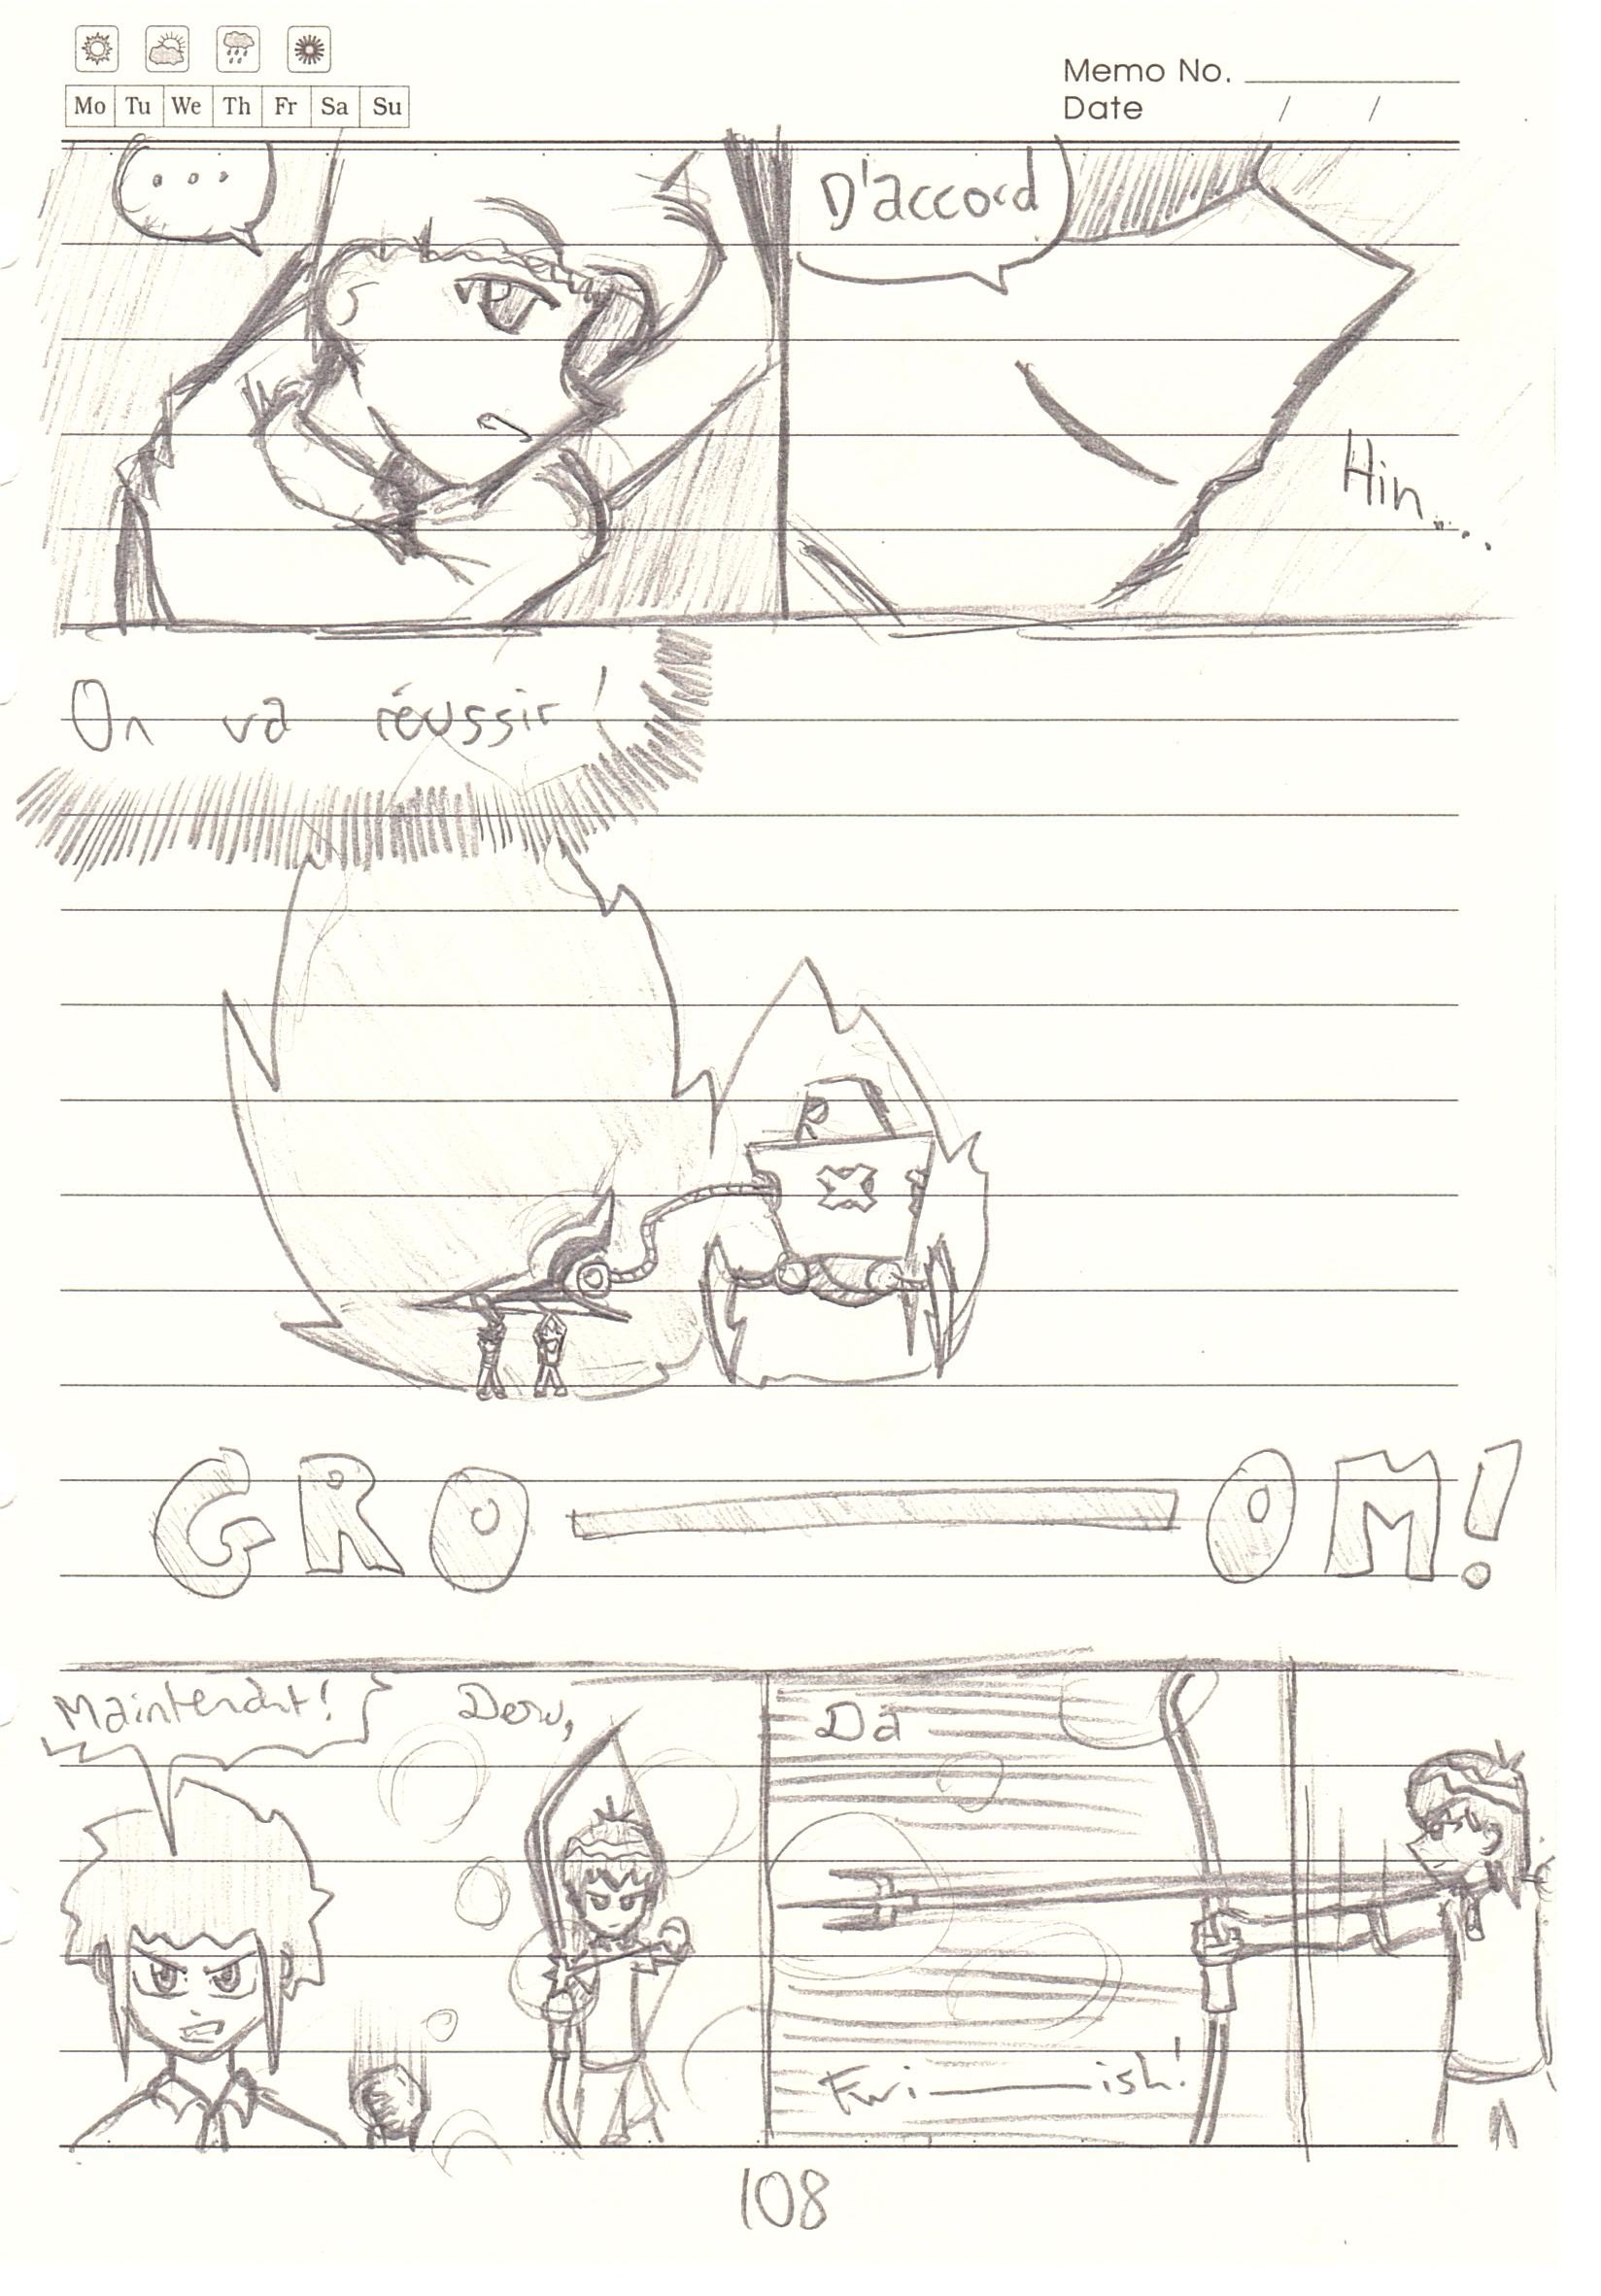 Memo No.
Mo Tu We Th Fr Sa Su
Date / /
...
D'accord
Hin...
On va réussir!
GRO—OM!
Maintenant!
Derw,
Da
Fwi———ish!
108